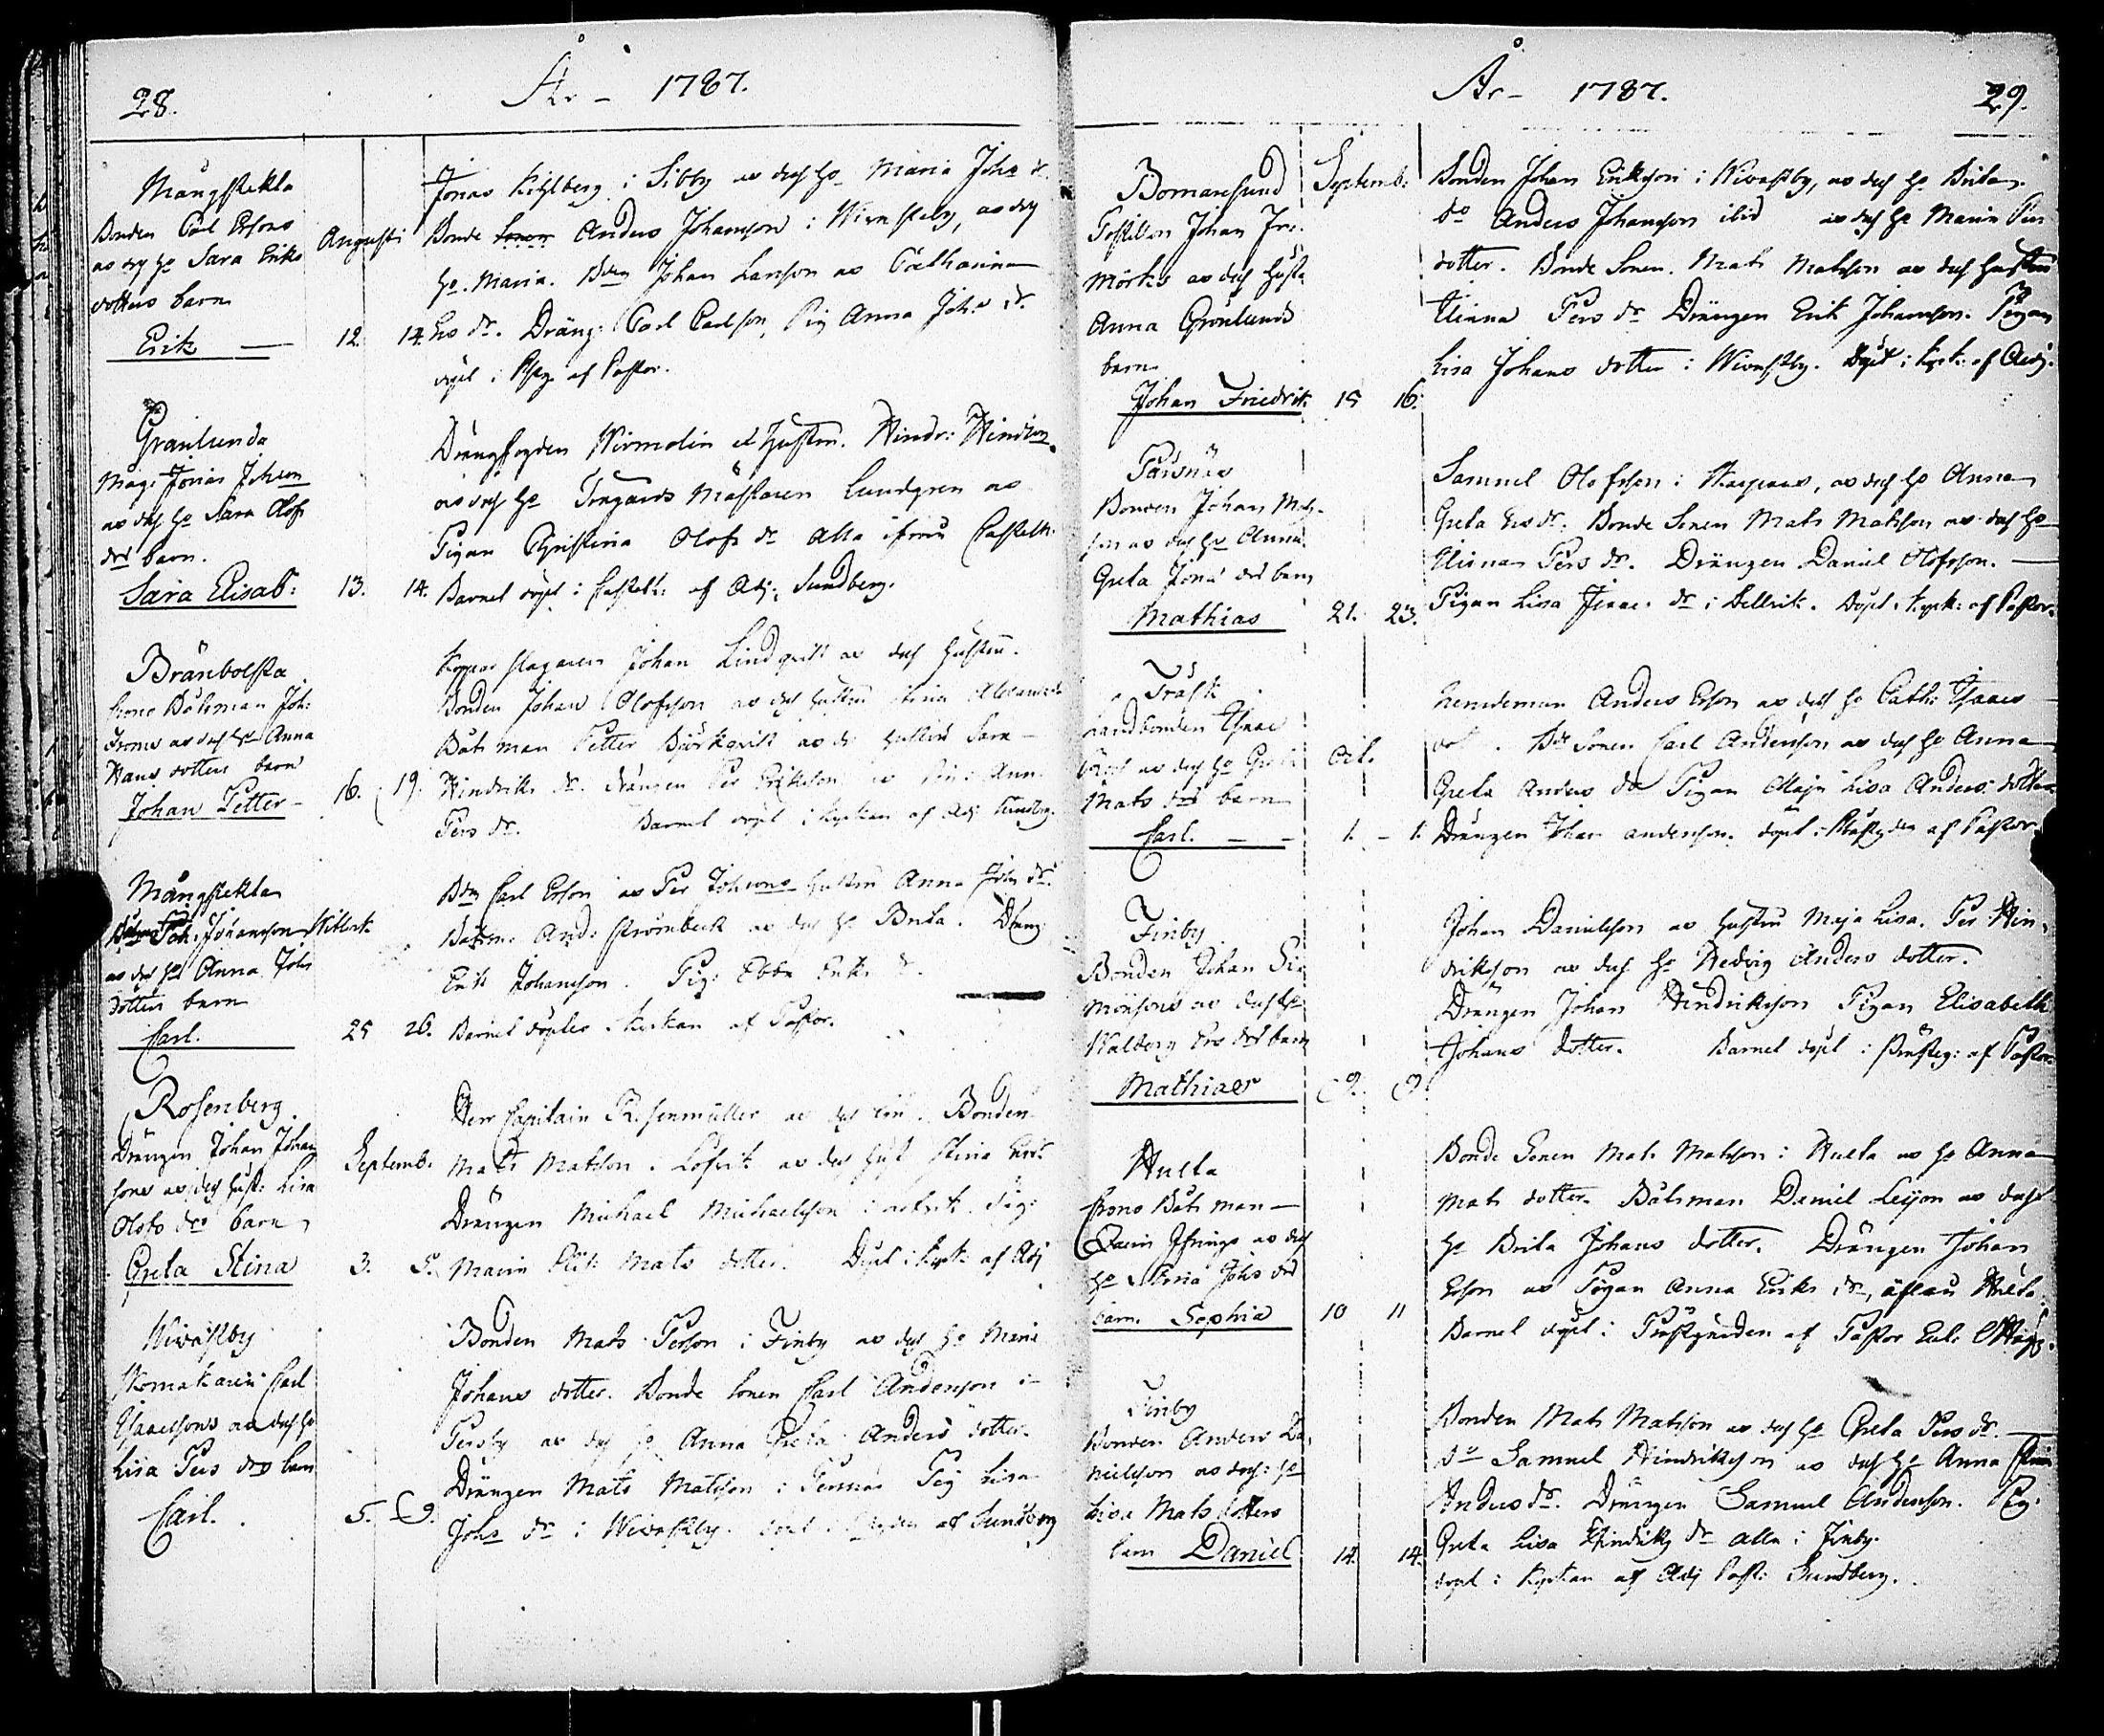 28.
År - 1787.
Mångstekta
Bonden Carl Ersons
Augusti
as dess ho Sara Eriks
dotters barn
Erik —
12. 14.
Jonas Kihlberg i Sibby as dess ho Maria Johs dr.
Bonde Sonen Anders Johansson i Wivastby, as dess
ho. Maria. Johan Larsson as Catharina
Ers dr. Dräng: Carl Carlson, Pig Anna Johs dr.
döpt i af Pastor.
Granlunda
Måg. Jonas Johsson
as dess ho Sara Olofs
drs barn.
Sara Elisab:
13. 14.
Drängfogden Wirmolin et Hustru. Hindr: Hindson
as dess ho Mästaren Lundgren as
Pigan Christina Olofs dr alla ifrån Castelh.
Barnet döpt i Castelh: af Adj: Sundberg.
Bränbolsta
Crono Båtsman Joh:
Froms as dess ho Anna
Hans dotters barn
Johan Petter -
16. 19.
Kopparslagaren Johan Lindqvist as dess hustru.
Bonden Johan Olofsson as dess hustru Stina
Båtsman Petter Björkqvist as ds hustru Sara -
Hindriks dr. drängen Per Erikson Ann.
Pers dr. Barnet döpt i kyrkan af Adj. Sundberg.
Mångstekta
Johansson
as dess ho Anna Johs
dotters barn
Carl.
25 26.
Carl Erson as Per Johsons hustru Anna Johs dr.
Båtsm: And: Strömbeck as dess ho Brita. Dräng
Erik Johansson. Pig: Ebba Eriks dr.
Barnet döptes i kyrkan af Pastor.
Rosenberg.
Drängen Johan Johan
Septemb.
sons as dess hust: Lisa
Olofs drs barn
Greta Stina
3. 5.
Herr Capitain Rosenmüller as dess Bonden
Mats Matsson i as dess hust Stina Ers
Drängen Michael Michaelsson i Pig:
Maria Mats dotter. Döpt i kyrk: af Adj
Wivastby
Carl
Isaacsons as dess ho
Lisa Pers drs barn
Carl.
5. 9.
Bonden Mats Person i Finby as dess ho Maria
Johans dotter. Bonde Sonen Carl Anderson i
Persby as dess ho Anna Greta Anders dotter.
Drängen Mats Matsson i Pig Lisa
Johs dr i Wivastby. döpt i af Sundberg
År - 1787.
29.
Bomarsund
Septemb:
Postillon Johan Jr.
Mörks as dess Hust
Anna Grönlunds
barn
Johan Friedrik
15 16.
Bonden Johan Erikson i Wivastby, as dess ho Brita
do Anders Johansson ibid as dess ho Maria Pers
dotter. Bonde Sonen Mats Matsson as dess Hustru
Pers dr Drängen Erik Johansson. Pigan
Lisa Johans dotter i Wivastby. Döpt i kyrk: af Adj.
Pårsnäs
Bonden Johan Mats
son as dess ho Anna
Greta Jons drs barn
Mathias
21. 23.
Samuel Olofsson i Karpaas, as dess ho Anna
Greta Ers dr. Bonde Sonen Mats Matsson as dess ho
Pers dr. Drängen Daniel Olofsson. —
Pigan Lisa Isaac. dr i Delvik. Döpt i kyrk: af Pastor.
Träsk
Landbonden Isaac
as dess ho Greta
Octb.
Mats drs barn
Carl. — —
1. - 1.
Anders Erson as dess ho Cath: Isaacs
Bde Sonen Carl Anderson as dess ho Anna
Greta Anders dr Pigan Maja Lisa Anders dotter
Drängen Johan Anderson. döpt i Prästgården af Pastor
Finby
Bonden Johan Si-
monsons as dess ho
Walborg Ers drs barn
Mathias
9. 9.
Johan Danielsson as hustru Maja Lisa. Per Hin-
drikson as dess ho Hedvig Anders dotter.
Drängen Johan Hindriksson Pigan Elisabeth
Johans dotter. Barnet döpt i Prästeg: af Pastor
Hulta
Crono Båtsman —
as dess
ho Johs drs
barn Sophia
10 11
Bonde Sonen Mats Matsson i Hulta as ho Anna
Mats dotter. Båtsman Daniel Leijon as dess
ho Brita Johans dotter. Drängen Johan
Erson as Pigan Anna Eriks dr, Hulta.
Barnet döpt i Prästgården af Pastor
Finby
Bonden Anders Da-
nielsson as dess: ho
Lisa Mats dotters
barn Daniel
14. 14.
Bonden Mats Matsson as dess ho Greta Pers dr. —
do Samuel Hindriksson as dess ho Anna Stina
Anders dr. Drängen Samuel Anderson. Pig.
Greta Lisa Hindriks dr alla i Finby.
döpt i kyrkan af Adj Past: Sundberg.